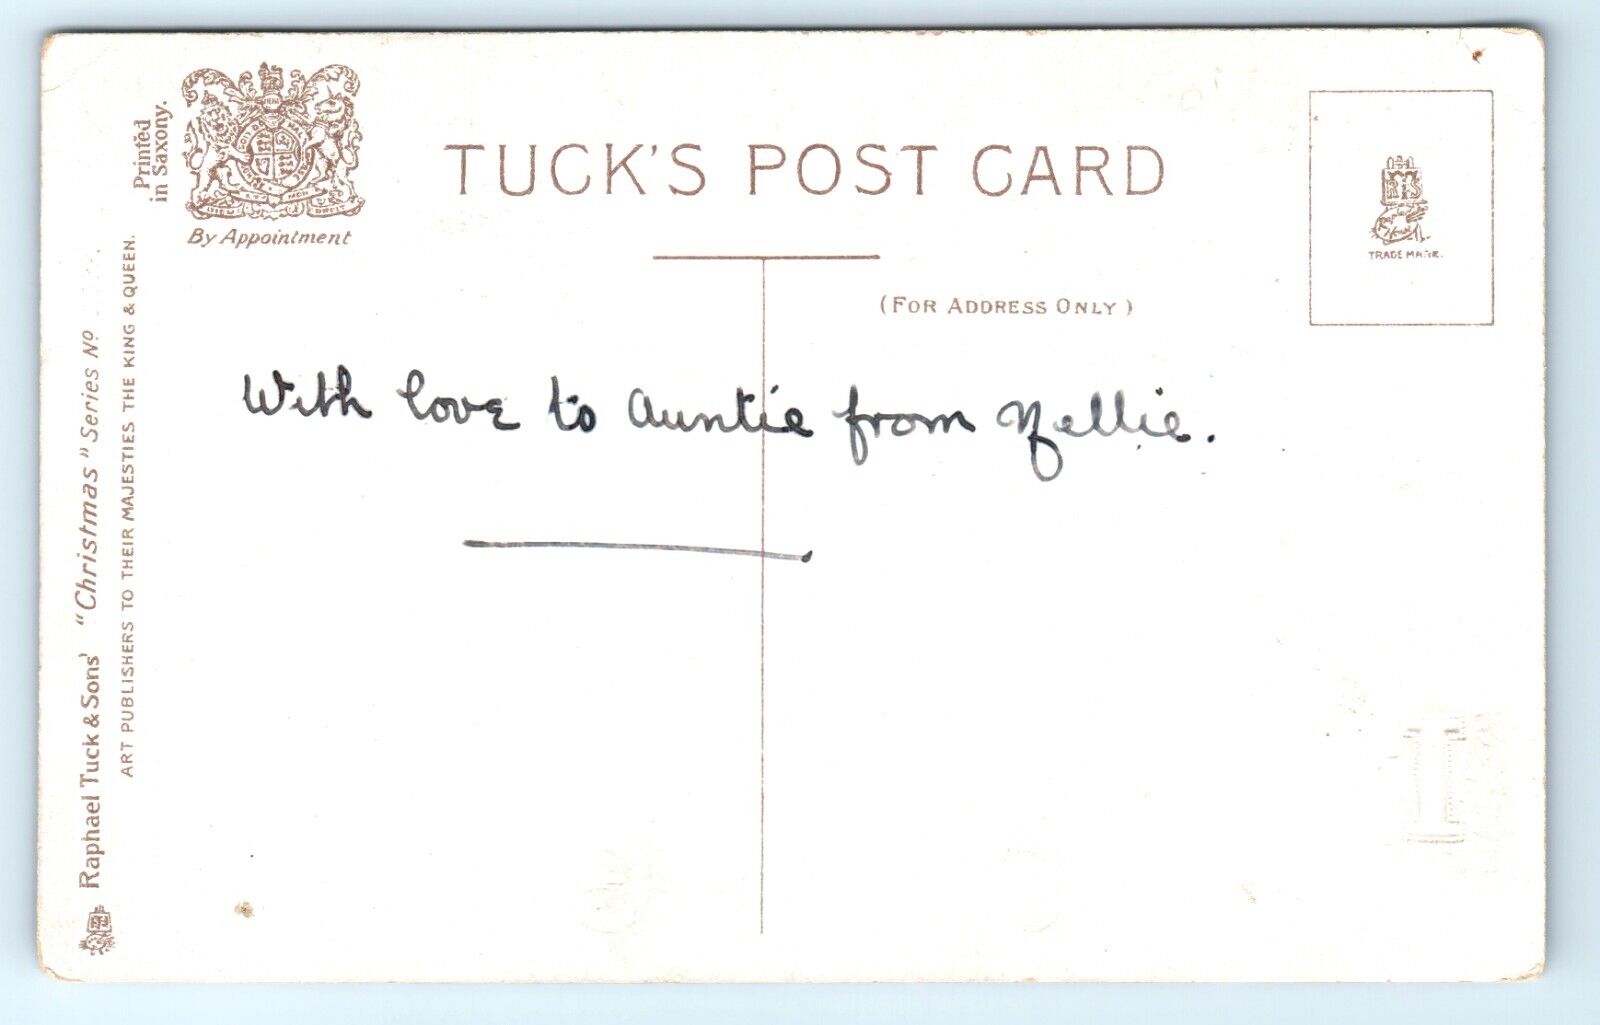 Printed
in Saxony.
By Appointment
TUCK'S POST CARD
(FOR ADDRESS ONLY)
TRADE MARK.
With love to Auntie from Nellie.
Raphael Tuck & Sons' "Christmas" Series No
ART PUBLISHERS TO THEIR MAJESTIES THE KING & QUEEN.
I